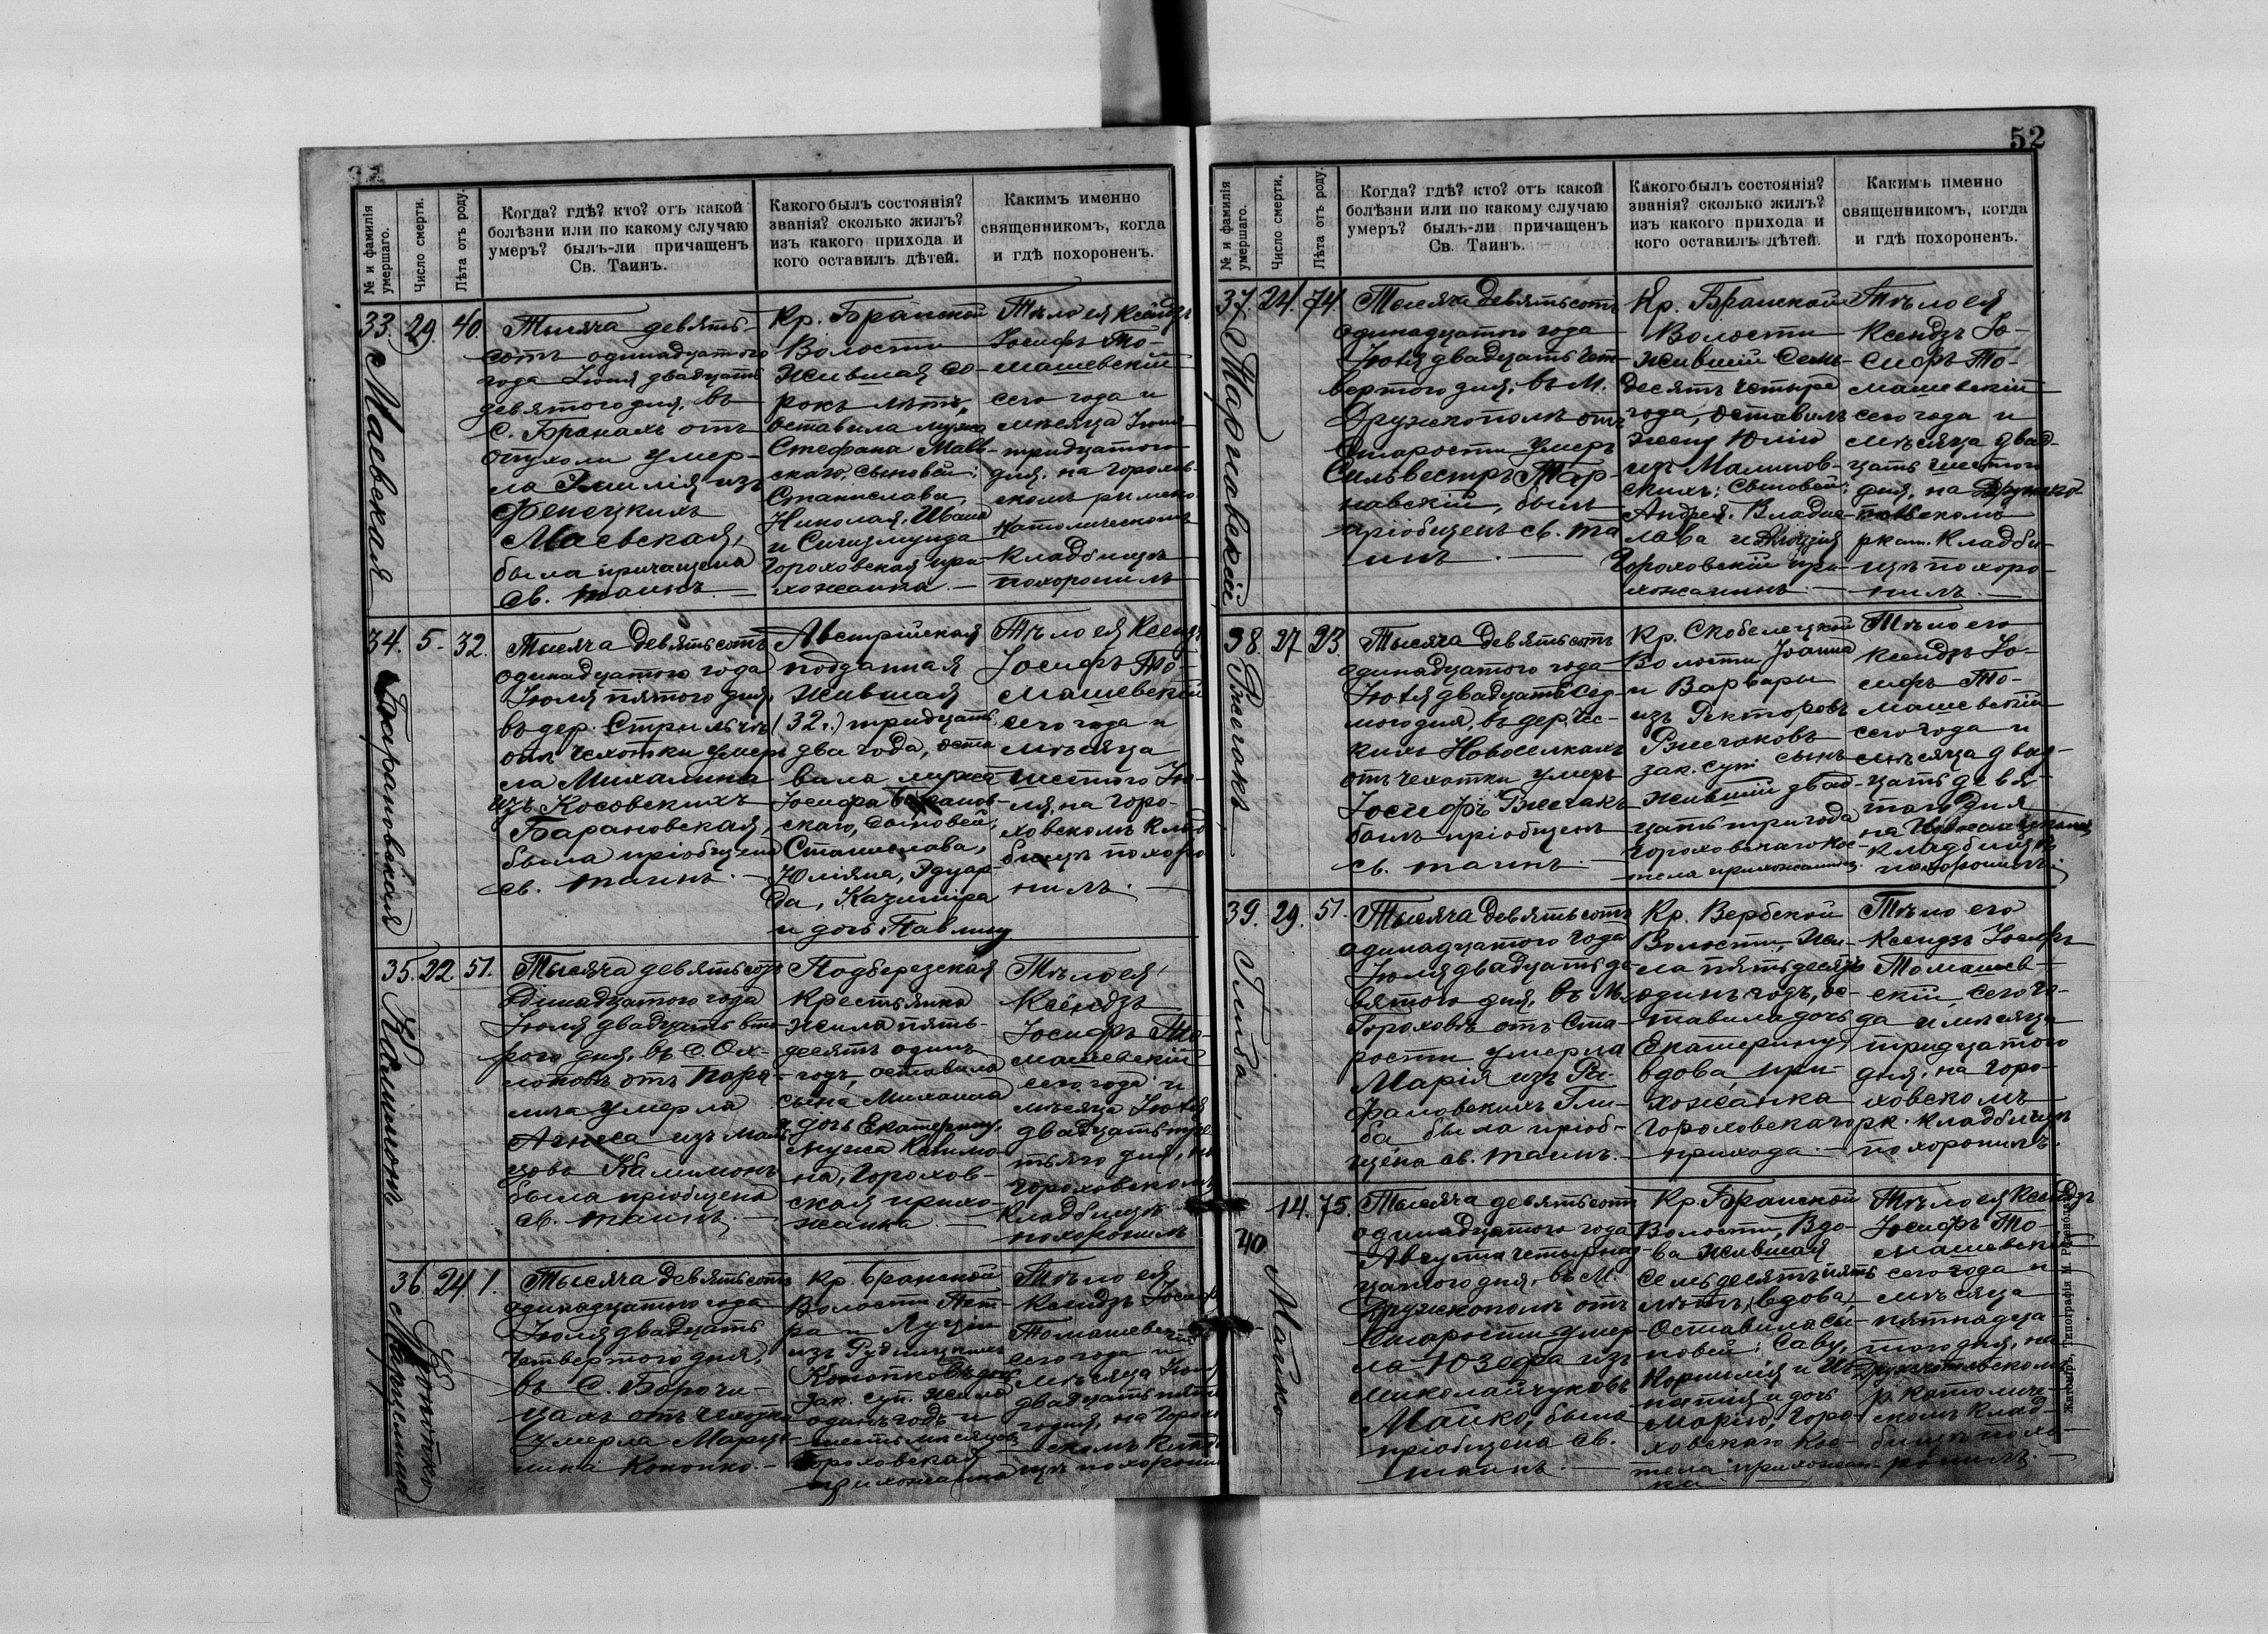 52
№ и фамилія умершаго.
Число смерти.
Лѣта отъ роду.
Когда? гдѣ? кто? отъ какой
болѣзни или по какому случаю
умеръ? былъ-ли причащенъ
Св. Таинъ.
Какого былъ состоянія?
званія? сколько жилъ?
изъ какого прихода и
кого оставилъ дѣтей.
Каким именно
священникомъ, когда
и гдѣ похороненъ.
33. 29. 40.
Маевская
Тысяча девять-
сотъ одинадцатого
года Іюня двадцать
девятого дня, въ
с. Бранахъ отъ
опухоли умер-
ла Эмилія изъ
Фенецкихъ
Маевская,
была причащена
св. таинъ. —
Кр. Бранской
Волости
жившая со-
рокъ лѣтъ,
оставила мужа
Стефана Маев-
скаго, сыновей:
Станислава,
Николая, Ивана
и Сигизмунда
Гороховская при-
хожанка. —
Тѣло ея Ксендзъ
Іосифъ То-
машевскій
сего года и
мѣсяца Іюня
тридцатого
дня, на Горохов-
скомъ римско-
католическомъ
кладбищѣ
похоронилъ
34. 5. 32.
Барановская
Тысяча девятьсотъ
одинадцатого года
Іюля пятого дня,
въ дер. Стрильче
отъ чехотки умер-
ла Михалина
изъ Косовскихъ
Барановская,
была пріобщена
св. таинъ. —
Австрійская
подданная
жившая
(32 г.) тридцать
два года, оста-
вила мужа
Іосифа Баранов-
скаго, сыновей:
Станислава,
Юліяна, Эдуар-
да, Казиміра
и дочь Павлину
Тѣло ея Ксендзъ
Іосифъ То-
машевскій
сего года и
мѣсяца
шестого Ію-
ля, на Горо-
ховскомъ клад-
бищѣ похоро-
нилъ. —
35. 22. 51.
Калимонъ
Тысяча девятьсотъ
одинадцатого года
Іюля двадцать вто-
рого дня, въ с. Ох-
лоповѣ отъ пара-
лича умерла
Агнеса изъ
Калимонъ
была пріобщена
св. таинъ. —
Подберезская
крестьянка
жила пять-
десятъ одинъ
годъ, оставила
сына Михаила
и дочь Екатерину,
мужа Калимо-
на, Горохов-
ская прихо-
жанка —
Тѣло ея
Ксендзъ
Іосифъ То-
машевскій
сего года и
мѣсяца Іюля
двадцать тре-
тьяго дня, на
Гороховскомъ
кладбищѣ
похоронилъ
36. 24. 1.
Конопко Марцелина
Тысяча девятьсотъ
одинадцатого года
Іюля двадцать
четвертого дня,
въ с. Борочи-
цахъ отъ чехотки
умерла Марце-
лина Конопко. —
Кр. Бранской
Волости Пет-
ра и Луціи
изъ Рудницкихъ
Конопковъ дочь
зак. суп. жила
одинъ годъ и
шесть мѣсяцевъ
Гороховская
прихожанка
Тѣло ея
Ксендзъ Іосифъ
Томашевскій
сего года и
мѣсяца Іюля
двадцать пято-
го дня, на Горохов-
скомъ кладби-
щѣ похоронилъ
№ и фамилія умершаго.
Число смерти.
Лѣта отъ роду.
Когда? гдѣ? кто? отъ какой
болѣзни или по какому случаю
умеръ? былъ-ли причащенъ
Св. Таинъ.
Какого былъ состоянія?
званія? сколько жилъ?
изъ какого прихода и
кого оставилъ дѣтей.
Каким именно
священникомъ, когда
и гдѣ похороненъ.
37. 24. 74.
Тарновскій
Тысяча девятьсотъ
одинадцатого года
Іюля двадцать чет-
вертого дня, въ м.
Дружкополѣ отъ
старости умеръ
Сильвестръ Тар-
новскій, былъ
пріобщенъ св. та-
инъ. —
Кр. Бранской
Волости
жившій семь-
десятъ четыре
года, оставилъ
жену Юлію
изъ Малинов-
скихъ; сыновей:
Андрея, Владис-
лава и
Гороховскій при-
хожанинъ. —
Тѣло ея
Ксендзъ Іо-
сифъ То-
машевскій
сего года и
мѣсяца двад-
цать шестого
дня, на Дружко-
польскомъ
р кат. кладби-
щѣ похоро-
нилъ. —
38. 27. 23.
Ржегакъ
Тысяча девятьсотъ
одинадцатого года
Іюля двадцать седь-
мого дня, въ дер. Чес-
кихъ Новоселкахъ
отъ чехотки умеръ
Іосифъ Ржегакъ
былъ пріобщенъ
св. таинъ. —
Кр. Скобелецкой
Волости Іоанна
и Варвары
изъ Ректоровъ
Ржегаковъ
зак. суп. сынъ
жившій двад-
цать три года
Гороховскаго кос-
тела прихожанинъ.
Тѣло его
Ксендзъ Іо-
сифъ То-
машевскій
сего года и
мѣсяца двад-
цать девя-
того дня
на
кладбищѣ
похоронилъ
39. 29. 51.
Глиба
Тысяча девятьсотъ
одинадцатого года
Іюля двадцать де-
вятого дня, въ м.
Гороховѣ отъ ста-
рости умерла
Марія изъ Ра-
фаловскихъ Гли-
ба была пріоб-
щена св. таинъ. —
Кр. Вербской
Волости, жи-
ла пятьдесятъ
одинъ годъ, ос-
тавила дочь
Екатерину,
вдова, при-
хожанка
Гороховскаго
прихода. —
Тѣло его
Ксендзъ Іосифъ
Томашев-
скій, сего го-
да и мѣсяца
тридцатого
дня, на Горо-
ховскомъ
рк. кладбищѣ
похоронилъ.
40. 14. 75.
Мацко
Тысяча девятьсотъ
одинадцатого года
Августа четырнад-
цатого дня, въ м.
Дружкополѣ отъ
старости умер-
ла Юзефа изъ
Миколайчуковъ
Мацко, была
пріобщена св.
таинъ. —
Кр. Бранской
Волости, Вдо-
ва жившая
семьдесятъ пять
лѣтъ, (вдова),
оставила сы-
новей: Саву,
Корнилія и Иг-
натія и дочь
Марію, Горо-
ховскаго кос-
тела прихожан-
ка
Тѣло ея Ксендзъ
Іосифъ То-
машевскій
сего года и
мѣсяца
пятнадца-
того дня, на
Дружкопольскомъ
р. католиче-
скомъ клад-
бищѣ похо-
ронилъ. —
Житоміръ, Типографія М.